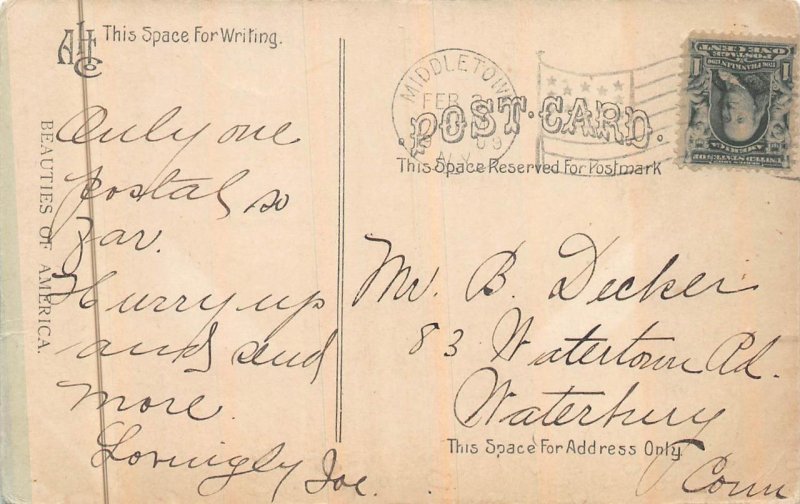 This Space For Writing.
BEAUTIES OF AMERICA.
Only one
postal so
far.
Hurry up
and send
more.
Lovingly Joe.
MIDDLETOWN
FEB
09
N.Y.
POST-CARD.
This Space Reserved For Postmark
Mr. B. Decker
83 Watertown Rd.
Waterbury
Conn
This Space For Address Only